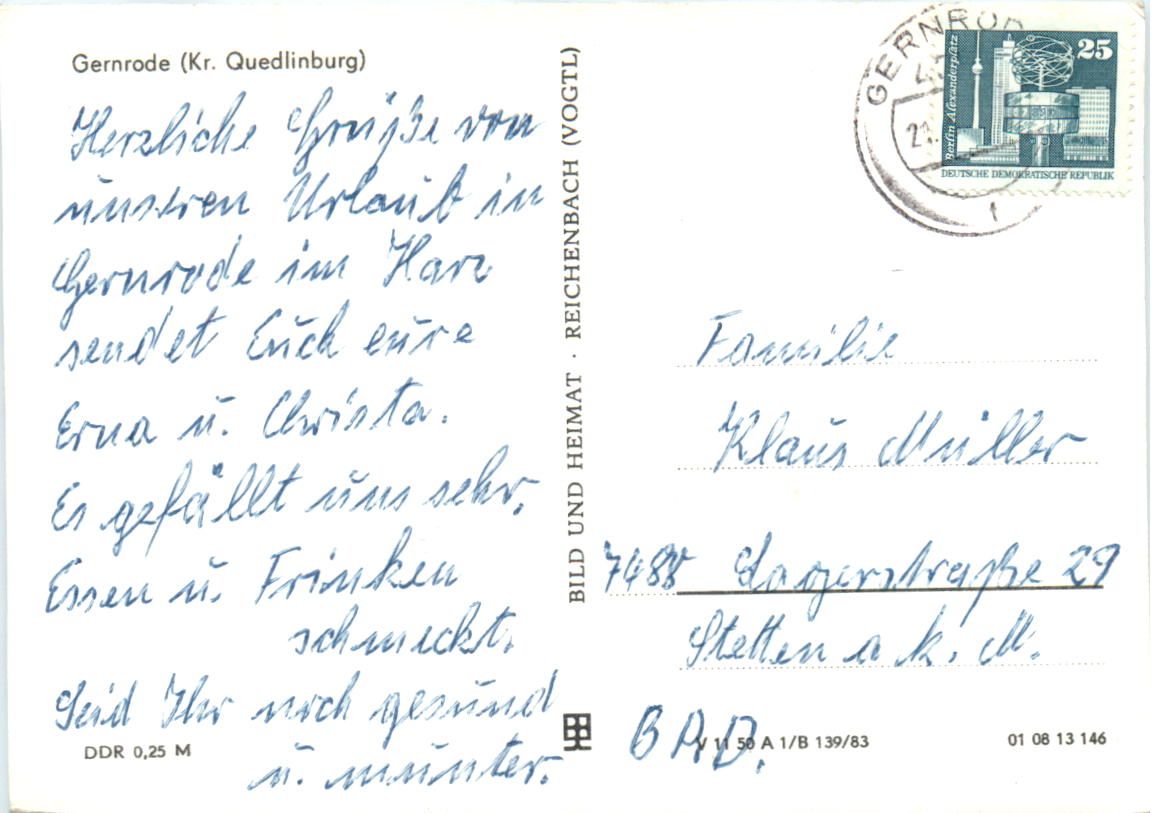 Gernrode (Kr. Quedlinburg)
Herzliche Grüße von
unseren Urlaub in
Gernrode im Harz
sendet Euch eure
Erna u. Christa.
Es gefällt uns sehr.
Essen u. Trinken
schmeckt.
Seid Ihr noch gesund
u. munter.
DDR 0,25 M
BILD UND HEIMAT · REICHENBACH (VOGTL)
GERNROD
25
Berlin Alexanderplatz
DEUTSCHE DEMOKRATISCHE REPUBLIK
Familie
Klaus Müller
7488 Lagerstraße 29
Stetten a k. M.
BRD.
V 11 50 A 1/B 139/83
01 08 13 146